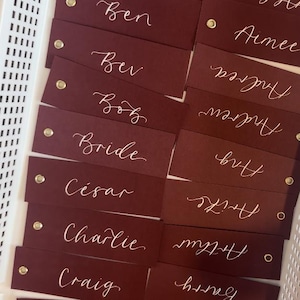 Ben
Bev
Bob
Bride
César
Charlie
Craig
Aimee
Andrea
Andrew
Ang
Arthur
Barry